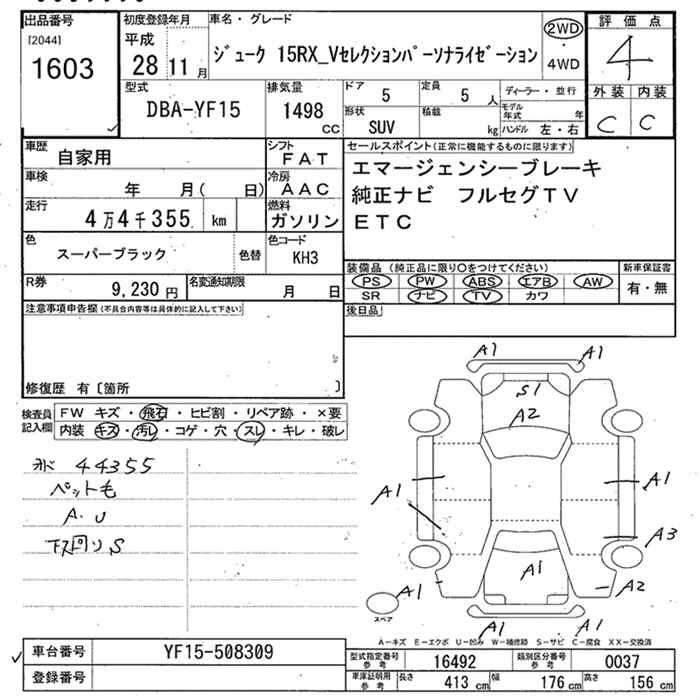 出品番号
[2044]
1603
初度登録年月
平成
28 11 月
車名・グレード
ジューク 15RX_Vセレクションパーソナライゼーション
2WD
・
4WD
評価点
4
外装 内装
C C
型式
DBA-YF15
排気量
1498 CC
ドア
5
定員
5 人
形状
SUV
積載
kg
ディーラー・並行
モデル年式 年
ハンドル 左・右
車歴
自家用
シフト
FAT
車検
年 月( 日)
冷房
AAC
走行
4万4千355 km
燃料
ガソリン
色
スーパーブラック
色替
色コード
KH3
R券
9,230 円
名変通知期限
月 日
セールスポイント(正常に機能するものに限ります)
エマージェンシーブレーキ
純正ナビ フルセグTV
ETC
装備品 (純正品に限り○をつけてください)
PS PW ABS エアB AW
SR ナビ TV カワ
新車保証書
有・無
後日品
注意事項申告欄(不具合内容等は具体的に記入して下さい)
修復歴 有〔箇所 〕
検査員記入欄
FW キズ・飛石・ヒビ割・リペア跡・×要
内装 キズ・汚レ・コゲ・穴・スレ・キレ・破レ
44355
ペット毛
A.U
下回りS
A1 A1
S1
A2
A1 A1
A3
A1
A1 A2
スペア
A1 A1
A−キズ E−エクボ U−凹み W−補修跡 S−サビ C−腐食 XX−交換済
車台番号
YF15-508309
登録番号
型式指定番号 参考
16492
類別区分番号 参考
0037
車庫証明用 参考
長さ 413 cm 幅 176 cm 高さ 156 cm